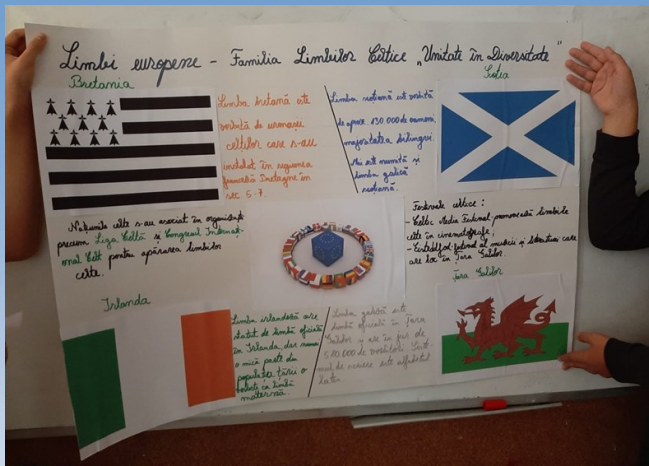 Limbi europene - Familia Limbilor Celtice „Unitate în Diversitate"
Bretania
Scoția
Limba bretonă este
vorbită de urmașii
celților care s-au
instalat în regiunea
franceză Bretagne în
sec 5-7.
Limba scoțiană est vorbită
de aprox. 130.000 de oameni
majoritatea bilingvi.
Mai este numită și
limba galică
scoțiană.
Națiunile celte s-au asociat în organizații
precum Liga Celtă și Congresul Internați-
onal Celt pentru apărarea limbilor
celte.
Festivale celtice:
- Celtic Media Festival-promovează limbile
celte în cinematografie;
- Eisteddfod-festival al muzicii și literaturii care
are loc în Țara Galilor.
Irlanda
Țara Galilor
Limba irlandeză are
statut de limbă oficială
în Irlanda, dar numai
o mică parte din
populația țării o
vorbește ca limbă
maternă.
Limba galică este
limbă oficială în Țara
Galilor și are în jur de
580.000 de vorbitori. Siste-
mul de scriere este alfabetul
latin